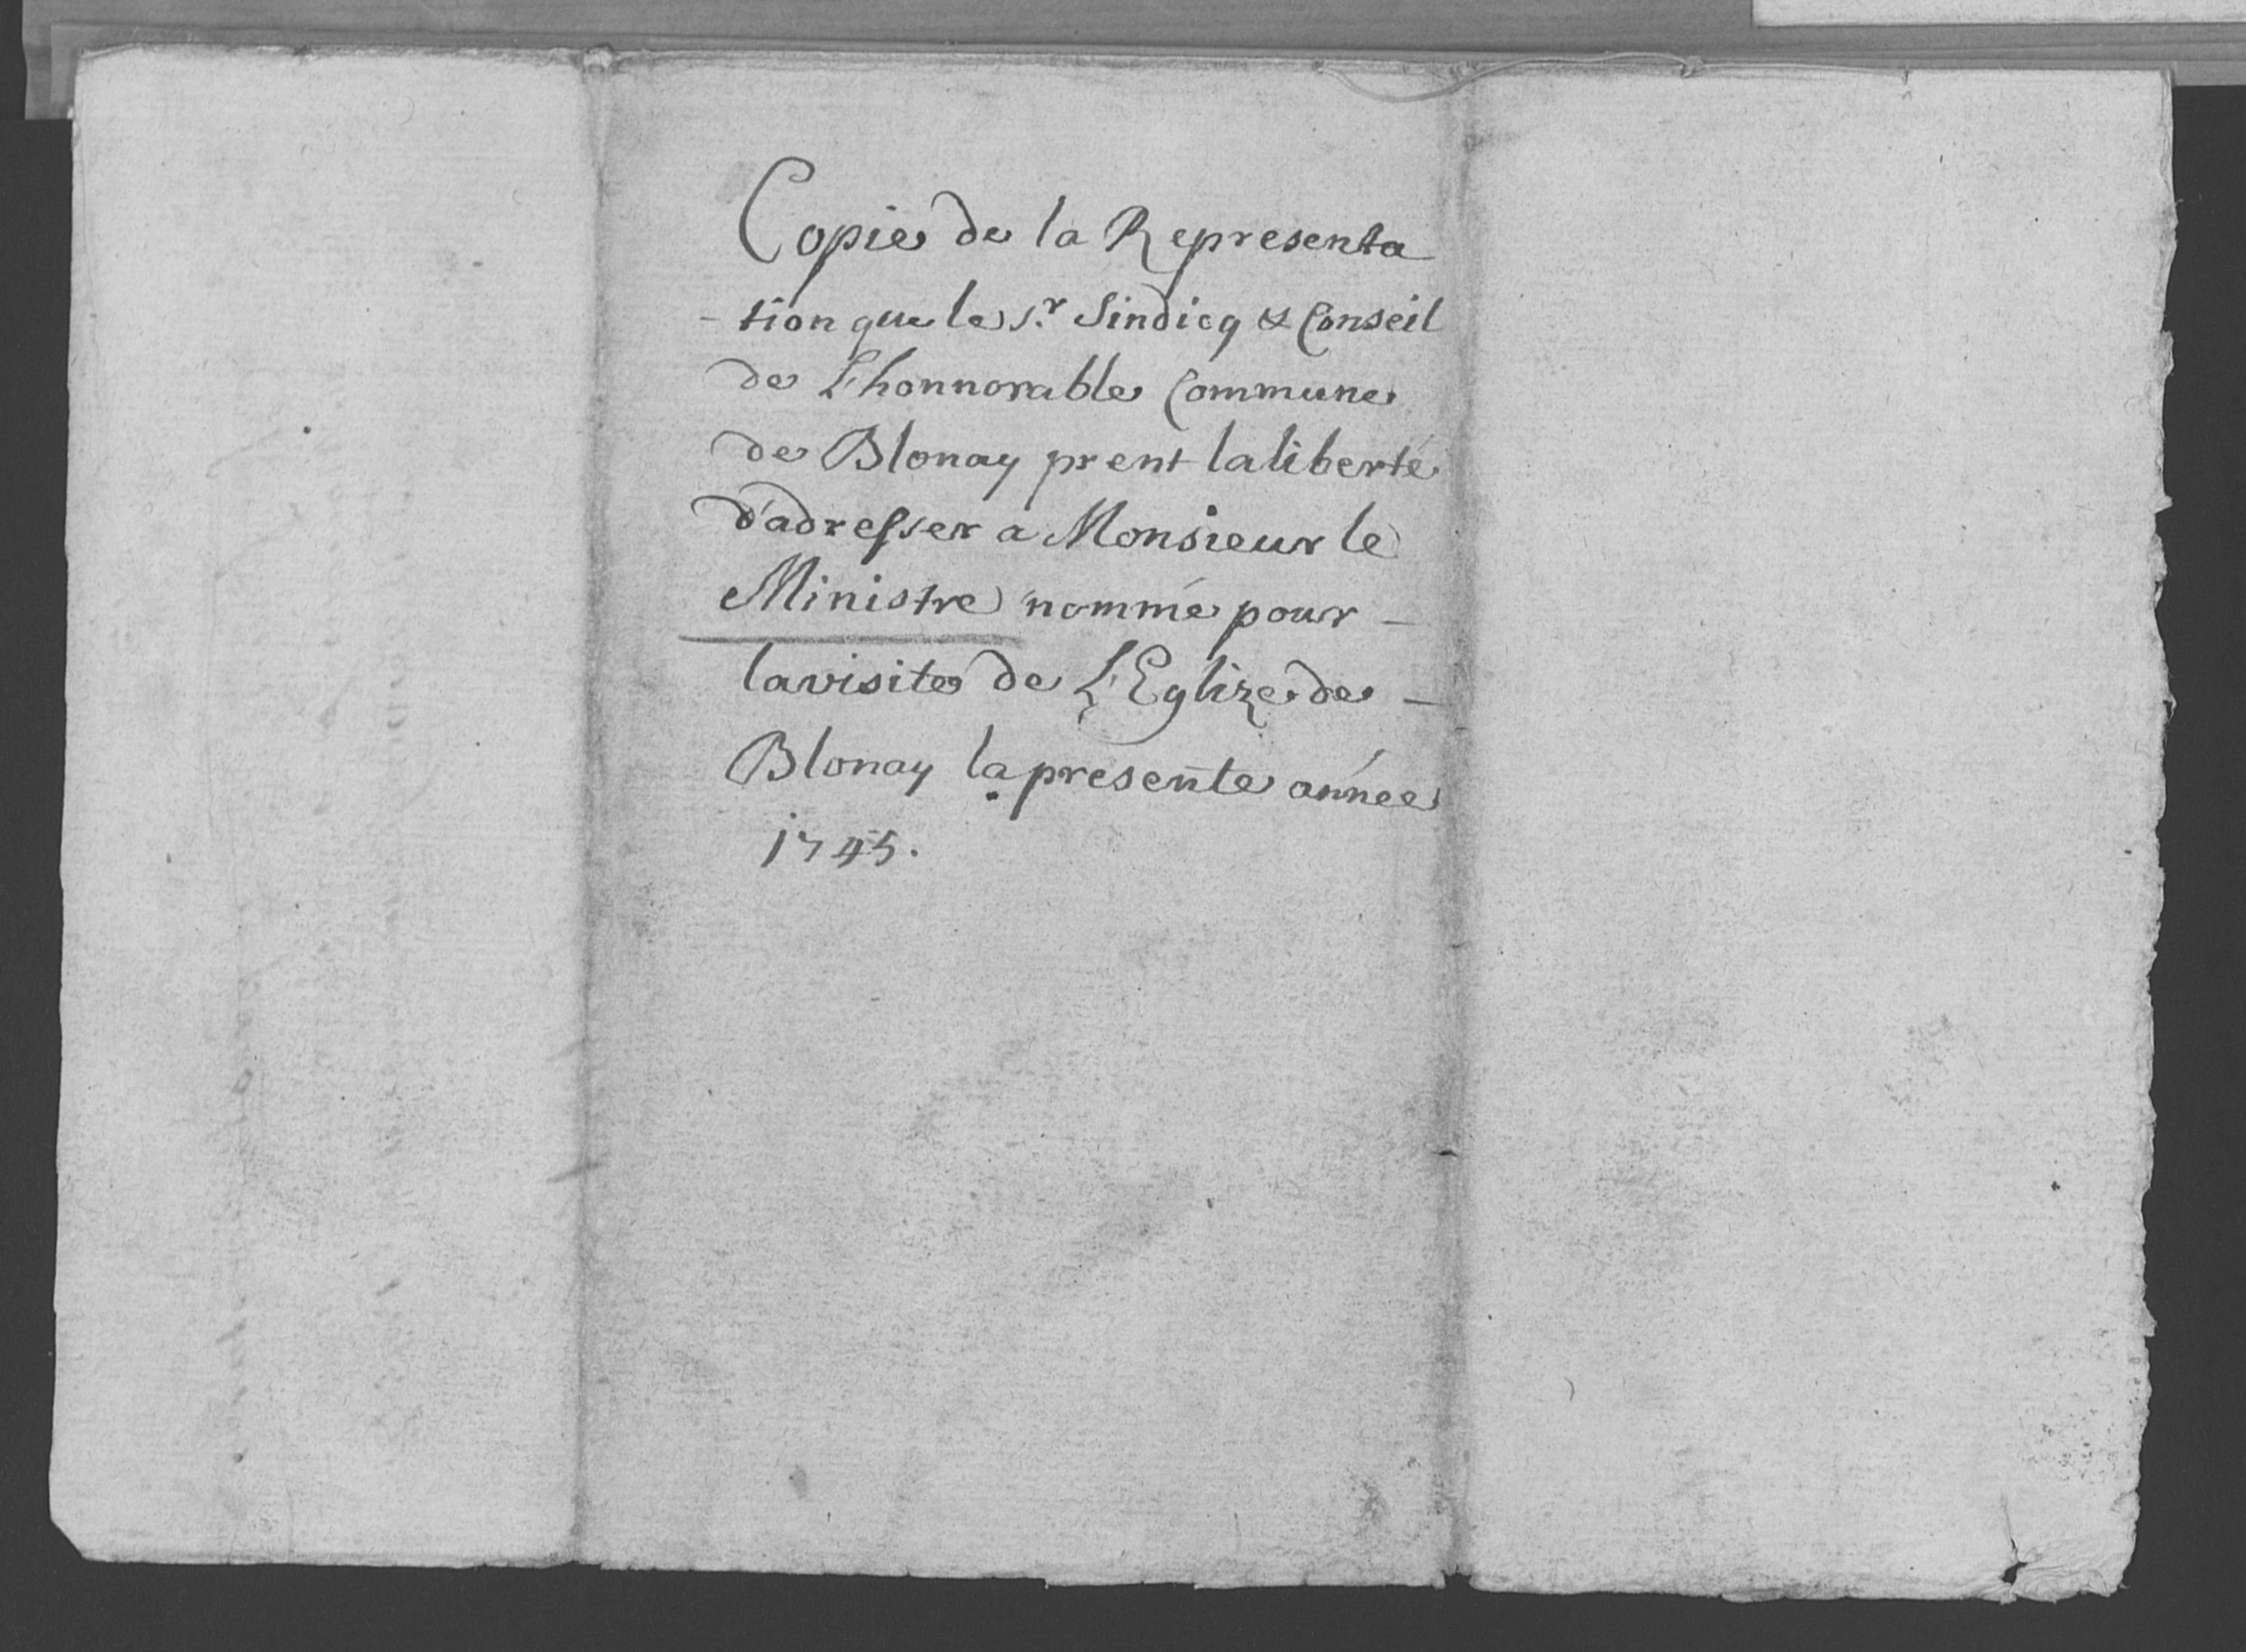 Copie de la Representa
-tion que le Sr. Sindicq & Conseil
de L'honnorable Commune
de Blonay prent la liberté
d'adresser a Monsieur le
Ministre nommé pour -
la visite de L'Eglize de -
Blonay la presente année
1745.